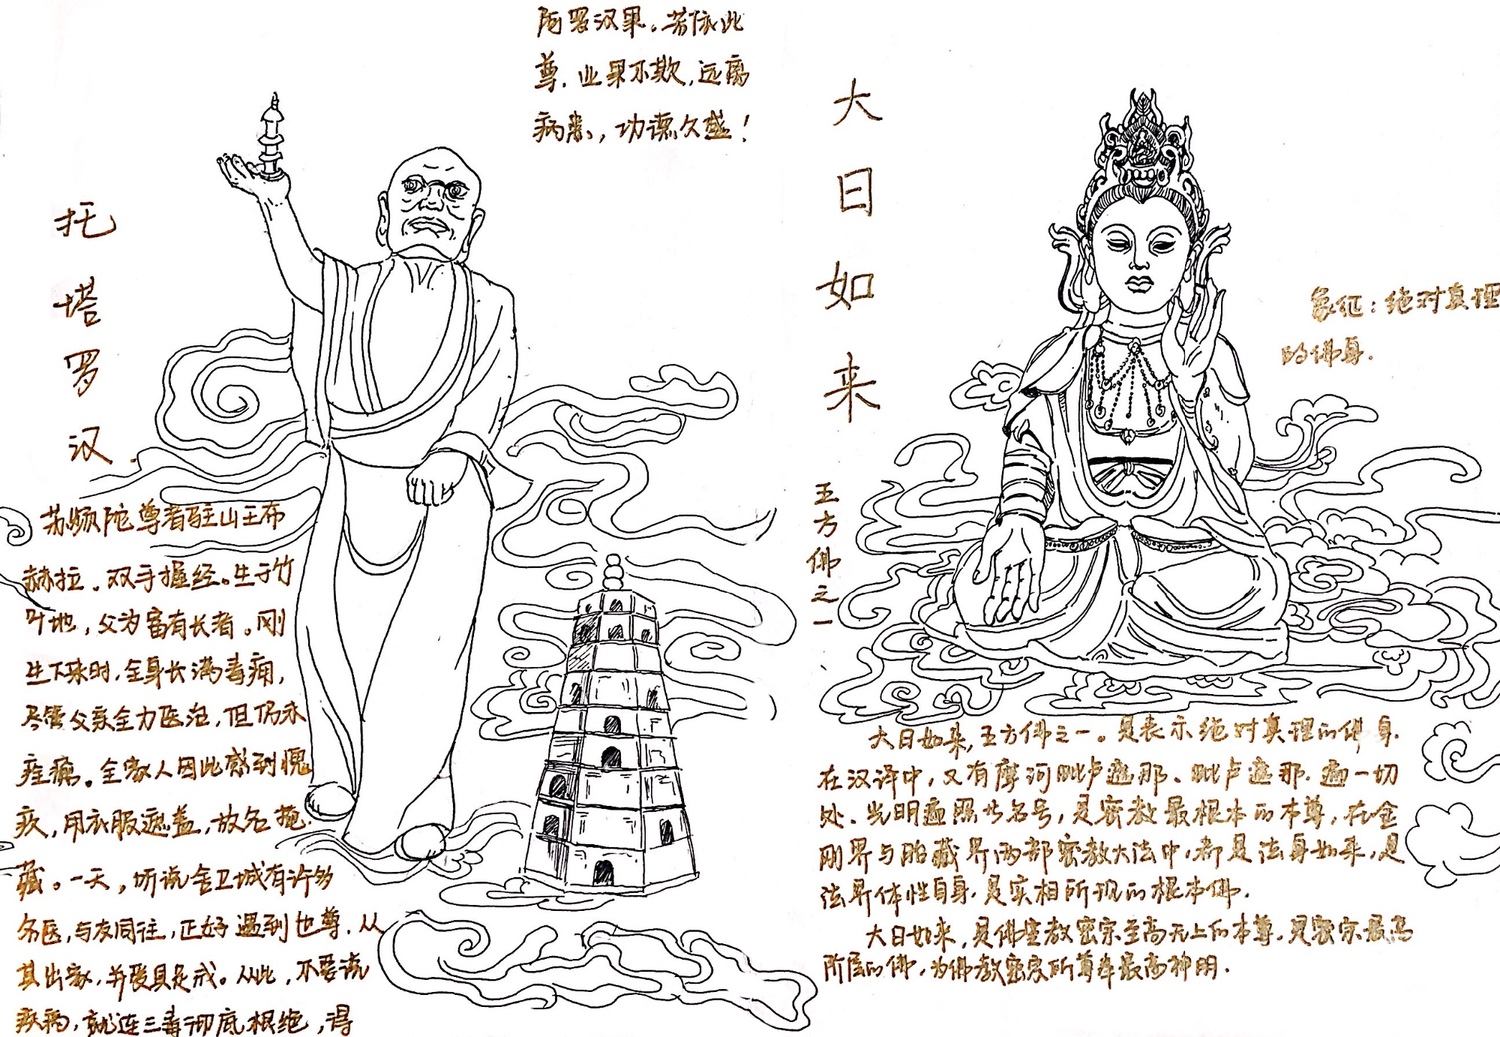 托塔罗汉.
苏频陀尊者驻山王布
赫拉。双手握经。生于竹
叶地，父为富有长者。刚
生下来时，全身长满毒痈，
尽管父亲全力医治，但仍未
痊瘉。全家人因此感到愧
疚，用衣服遮盖，放名掩
藏。一天，听说舍卫城有许多
名医，与友同往，正好遇到世尊，从
其出家，并受具足戒。从此，不要说
疾病，就连三毒彻底根绝，得
阿罗汉果。若依此
尊，业果不欺，远离
病患，功德久盛！
大日如来
五方佛之一、
象征：绝对真理
的佛身.
大日如来，五方佛之一。是表示绝对真理的佛身.
在汉译中，又有摩诃毗卢遮那、毗卢遮那、遍一切
处、光明遍照廿名号，是密教最根本的本尊，在金
刚界与胎藏界两部密教大法中，都是法身如来，是
法界体性自身，是实相所现的根本佛.
大日如来，是佛密教密宗至高无上的本尊，是密宗最高
阶层的佛，为佛教密宗所尊奉最高神明.